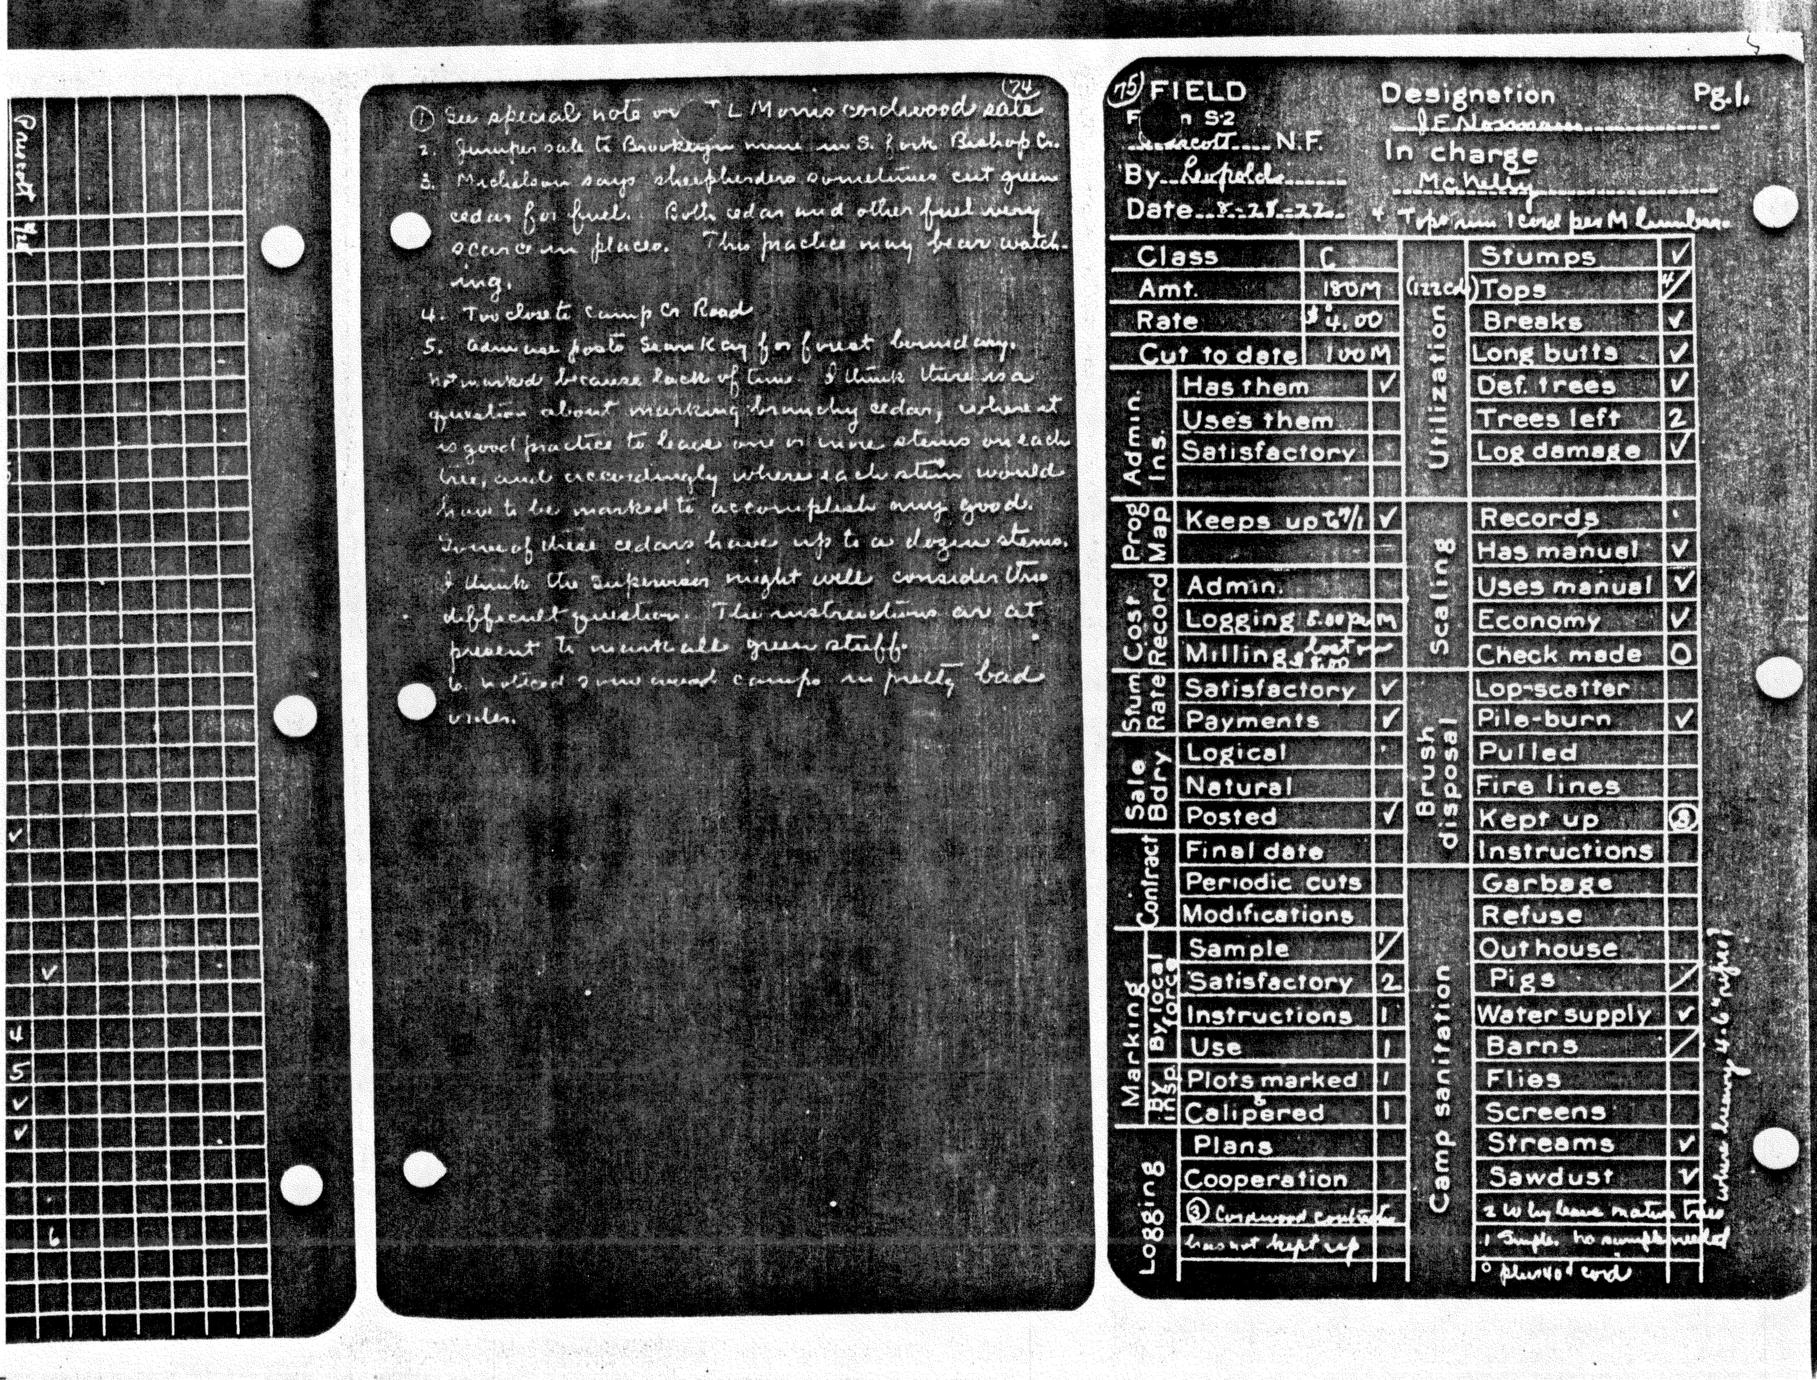 Prescott
4
5
6
74
① See special note on T L Morris cordwood sale
2. Juniper sale to Brooklyn mine in S. fork Bishop Cr.
3. Michelson says sheepherders sometimes cut green
cedar for fuel. Both cedar and other fuel very
scarce in places. This practice may bear watch-
ing.
4. Too close to Camp Cr Road
5. Adm use posts Sear Kay for forest boundary.
not marked because lack of time. I think there is a
question about marking branchy cedar, where it
is good practice to leave one or more stems on each
tree, and accordingly where each stem would
have to be marked to accomplish any good.
Some of these cedars have up to a dozen stems.
I think the Supervisor might well consider this
difficult question. The instructions are at
present to mark all green stuff.
6. Noticed some wood camps in pretty bad
order.
75 FIELD Designation Pg. 1.
S-2 J E Normann
Prescott N.F. In charge
By Leopold McNelly
Date 8-28-22 4 Tops run 1 cord per M lumber.
Class C Stumps ✓
Amt. 180M (122cds) Tops 4/
Rate $4.00 Breaks ✓
Cut to date 100M Long butts ✓
Admin. Ins. Has them ✓ Utilization Def. trees ✓
Uses them Trees left 2
Satisfactory Log damage ✓
Prog Map Keeps up to 7/1 ✓ Scaling Records
Has manual ✓
Cost Record Admin. Uses manual ✓
Logging 8.00 per M Economy ✓
Milling Check made 0
Stum Rate Satisfactory ✓ Brush disposal Lop-scatter
Payments ✓ Pile-burn ✓
Sale Bdry Logical Pulled
Natural Fire lines
Posted ✓ Kept up ③
Contract Final date Instructions
Periodic cuts Camp sanitation Garbage
Modifications Refuse
Marking By local force Sample 1/ Outhouse
Satisfactory 2 Pigs /
Instructions 1 Water supply ✓
Use 1 Barns /
By insp Plots marked 1 Flies
& Calipered 1 Screens
Logging Plans Streams ✓
Cooperation Sawdust ✓
③ Cordwood contractor 2 Why leave mature trees
has not kept up 1 Simple. no sample needed
° plus 40¢ cord
where heavy 4-6"